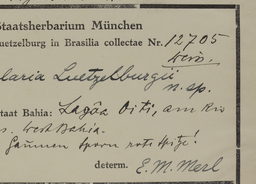 Staatsherbarium München
uetzelburg in Brasilia collectae Nr. 12705
laria Luetzelburgii
n. sp.
taat Bahia: Lagôa Oiti, am Rio
s. West Bahia.
Gaumen Sporn rote Spitze!
determ. E. M. Merl